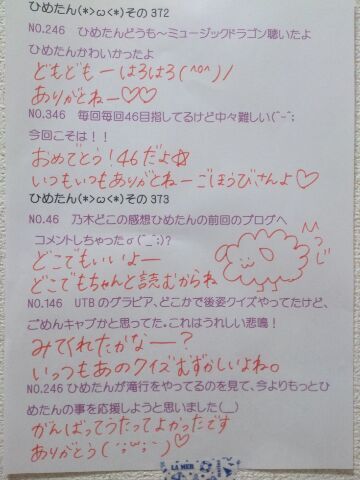 ひめたん(*>ω<*)その372
NO.246 ひめたんどうも〜ミュージックドラゴン聴いたよ
ひめたんかわいかったよ
どもどもーはろはろ(^o^)/
ありがとねー♡♡
NO.346 毎回毎回46目指してるけど中々難しい(^-^;
今回こそは！！
おめでとう！46だよ☆
いつもいつもありがとねーごほうびさんよ♡
ひめたん(*>ω<*)その373
NO.46 乃木どこの感想ひめたんの前回のブログへ
コメントしちゃったσ(^_^;)?
どこでもいいよー
どこでもちゃんと読むからね
ひつじ
NO.146 UTBのグラビア、どこかで後姿クイズやってたけど、
ごめんキャプかと思ってた。これはうれしい悲鳴！
みてくれたかなー？
いっつもあのクイズむずかしいよね。
NO.246 ひめたんが滝行をやってるのを見て、今よりもっとひ
めたんの事を応援しようと思いました(__)
がんばってうたってよかったです
ありがとう(´;ω;｀)♡
LA MER